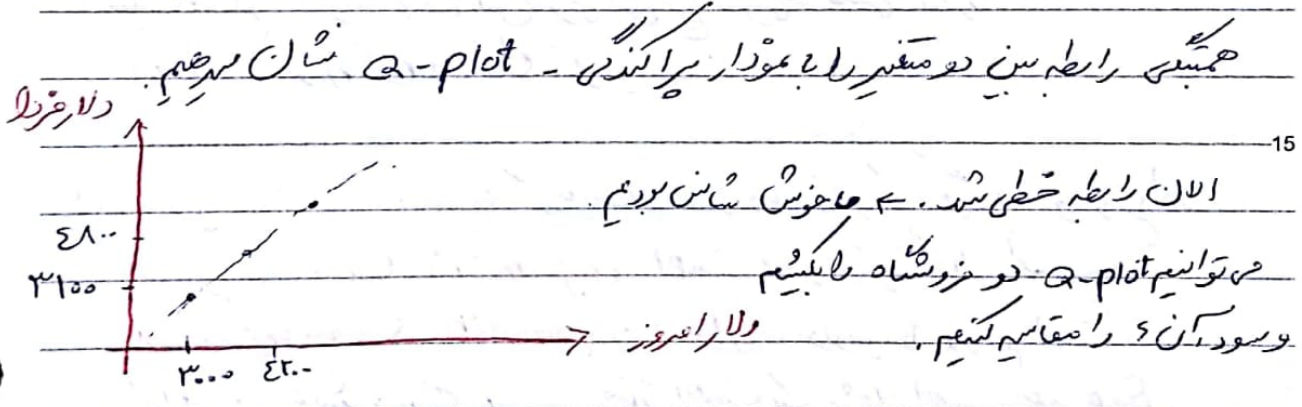 همبستگی رابطه بین دو متغیر را با نمودار پراکندگی - Q-plot نشان میدهیم.
دلار فردا
15
الان رابطه خطی شد. ← ما خوش شانس بودیم.
۴۸۰۰
می توانیم Q-plot دو فروشگاه را بکشیم
۳۱۰۰
و سود آن ها را مقایسه کنیم.
دلار امروز
۳۰۰۰ ۴۲۰۰